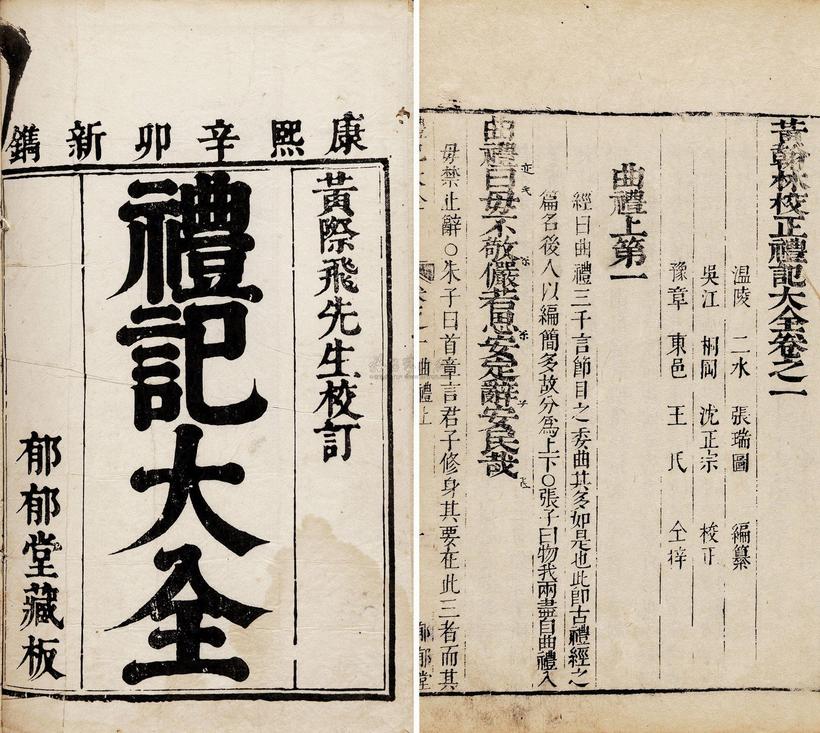 康熙辛卯新鐫
黃際飛先生校訂
禮記大全
郁郁堂藏板
黃翰林校正禮記大全卷之一
温陵 二水 張瑞圖 編纂
吳江 桐岡 沈正宗 校正
豫章 東邑 王氏 仝梓
曲禮上第一
經曰曲禮三千言節目之委曲其多如是也此即古禮經之
篇名後人以編簡多故分爲上下○張子曰物我兩盡自曲禮入
曲禮曰毋不敬儼若思安定辭安民哉
毋禁止辭○朱子曰首章言君子修身其要在此三者而其
禮記大全 卷之一 曲禮上 郁郁堂